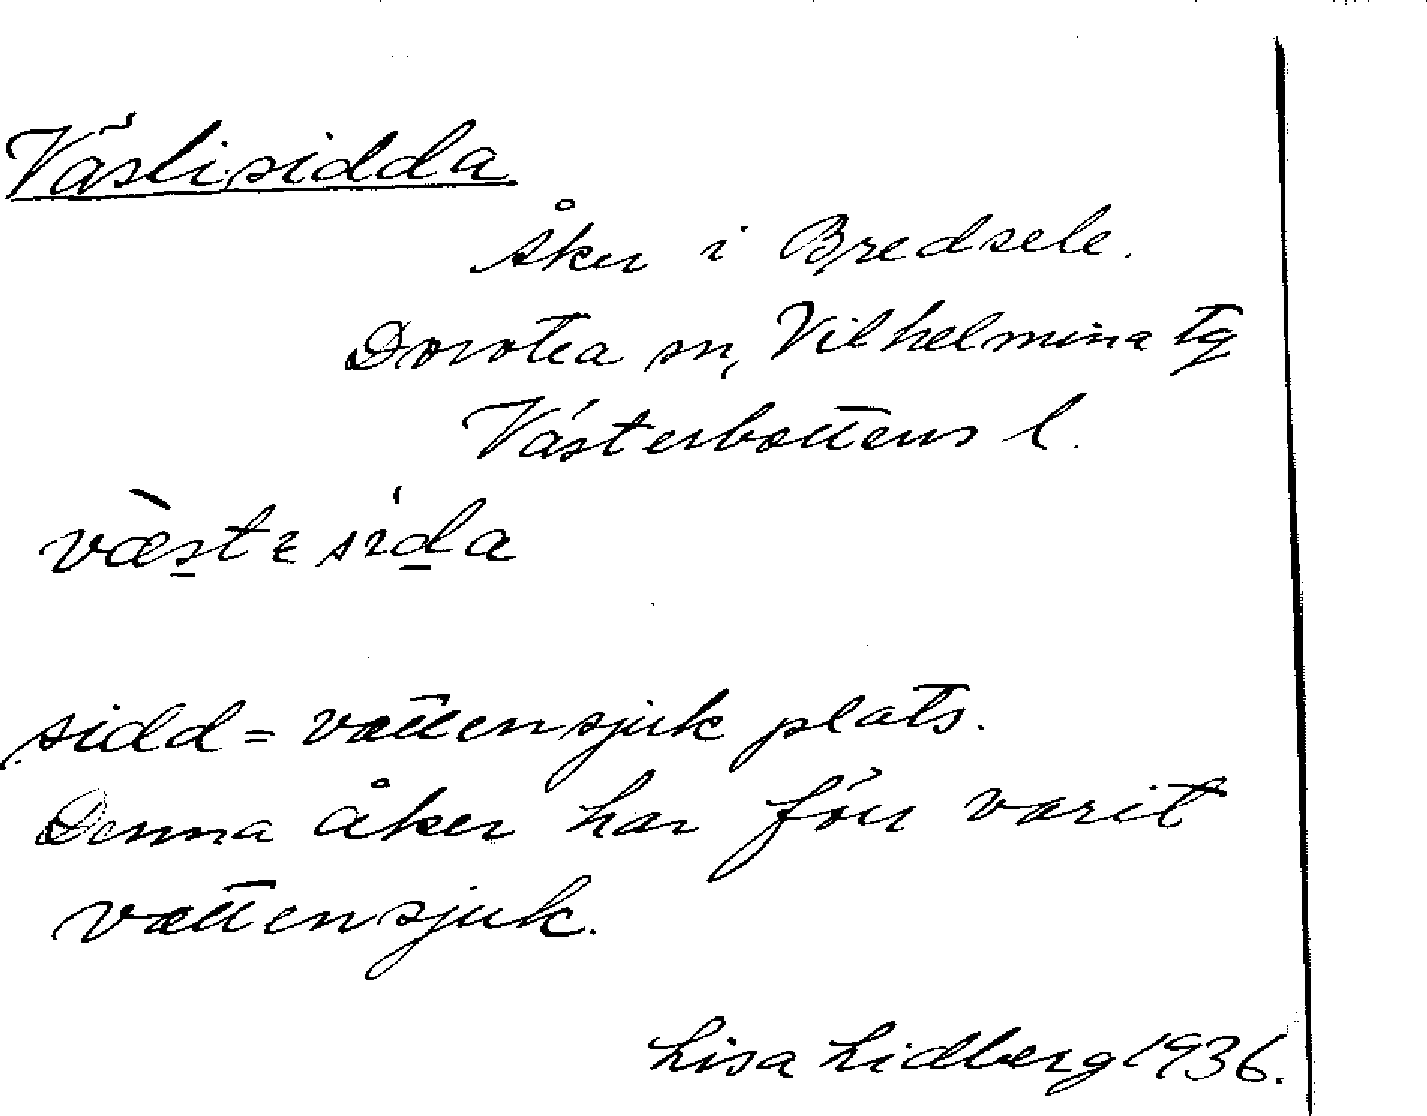 Västisidda
Åker i Bredsele.
Dorotea sn, Vilhelmina tg
Västerbottens l.
væ̀stɛ sída
sidd = vattensjuk plats.
Denna åker har förr varit
vattensjuk.
Lisa Lidberg 1936.